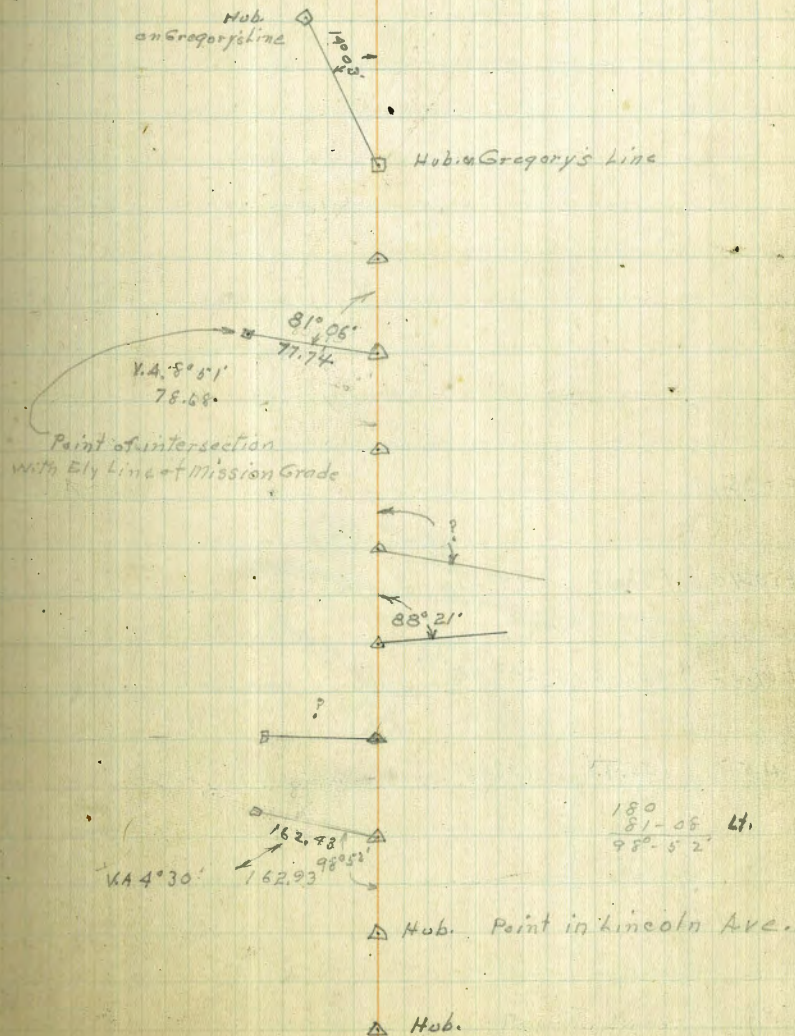 Hub.
on Gregory's Line
Hub. on Gregory's Line
81° 06'
77.74
V.A. 8° 51'
78.68
Point of intersection
with Ely Line of Mission Grade
?
88° 21'
?
162.43
98° 52'
V.A 4° 30'
162.93
180
81-08 Lt.
98°-52'
Hub. Point in Lincoln Ave.
Hub.